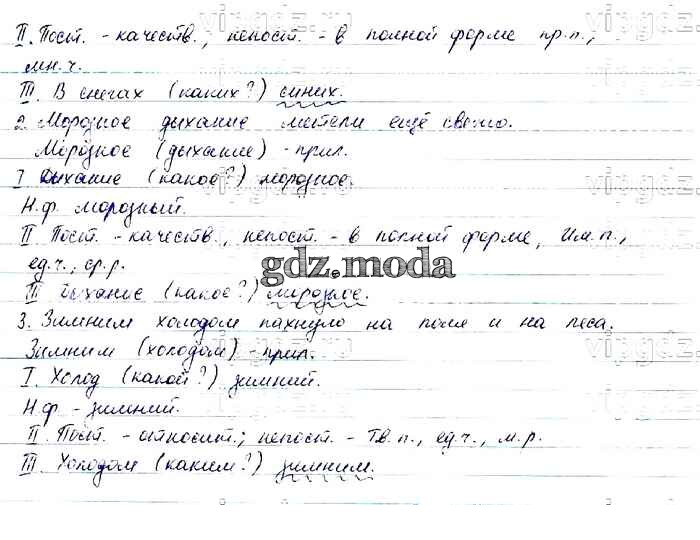 II. Пост. - качеств., непост. - в полной форме пр.п.,
мн.ч.
III. В снегах (каких?) синих.
2. Морозное дыхание метели ещё свежо.
Морозное (дыхание) - прил.
I Дыхание (какое?) морозное.
Н.ф. морозный.
II Пост. - качеств., непост. - в полной форме, Им.п.,
ед.ч., ср.р.
gdz.moda
III Дыхание (какое?) морозное.
3. Зимним холодом пахнуло на поля и на леса.
Зимним (холодом) - прил.
I. Холод (какой?) зимний.
Н.ф. - зимний.
II. Пост. - относит.; непост. - Тв.п., ед.ч., м.р.
III. Холодом (каким?) зимним.